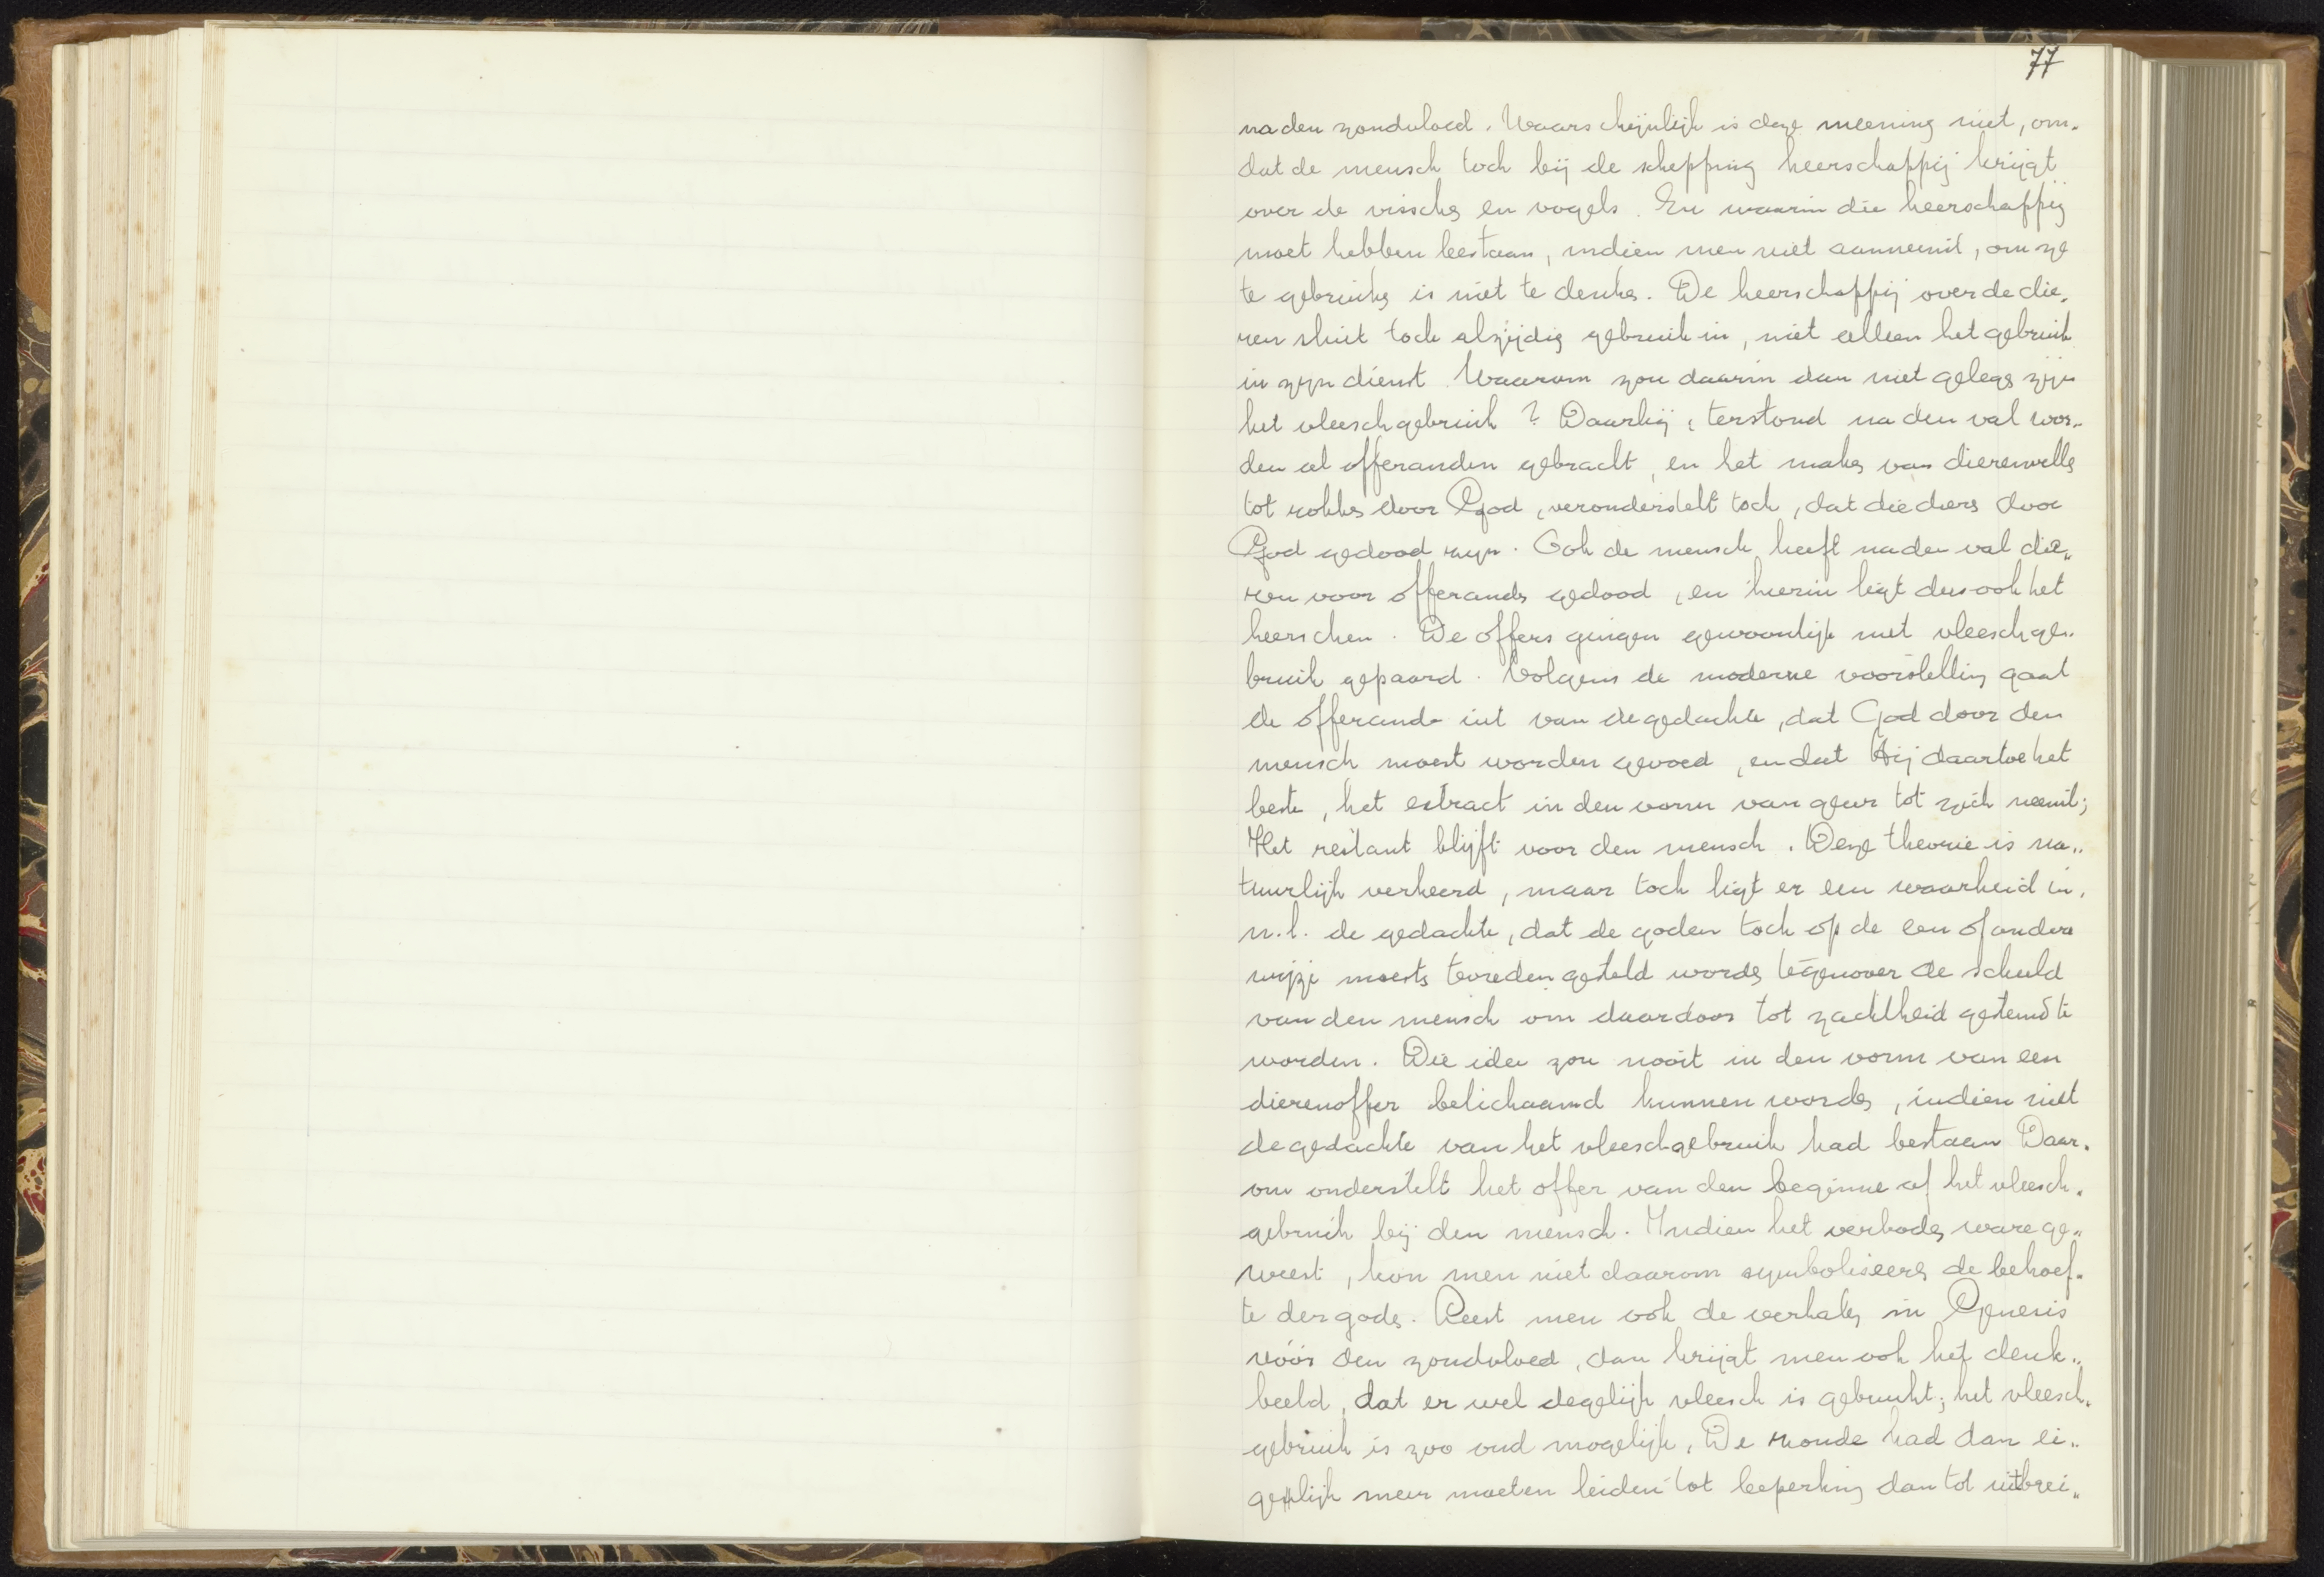 77
na den zondvloed. Waarschijnlijk is deze meening niet, om-
dat de mensch toch bij de schepping heerschappij krijgt
over de visschen en vogels. En waarin die heerschappij
moet hebben bestaan, indien men niet aanneemt, om ze
te gebruiken is niet te denken. De heerschappij over de die-
ren sluit toch alzijdig gebruik in, niet alleen het gebruik
in zijn dienst. Waarom zou daarin dan niet gelegen zijn
het vleeschgebruik? Daarbij, terstond na den val wor-
den al offeranden gebracht, en het maken van dierenvellen
tot rokken door God, veronderstelt toch, dat die dieren door
God gedood zijn. Ook de mensch heeft na den val die-
ren voor offeranden gedood, en hierin ligt dus ook het
heerschen. De offers gingen gewoonlijk met vleeschge-
bruik gepaard. Volgens de moderne voorstelling gaat
de offerande uit van de gedachte, dat God door den
mensch moest worden gevoed, en dat Hij daartoe het
beste, het extract in den vorm van geur tot zich neemt;
Het restant blijft voor den mensch. Deze theorie is na-
tuurlijk verkeerd, maar toch ligt er een waarheid in,
n.l. de gedachte, dat de goden toch op de een of andere
wijze moesten tevreden gesteld worden tegenover de schuld
van den mensch om daardoor tot zachtheid gestemd te
worden. Die idee zou nooit in den vorm van een
dierenoffer belichaamd kunnen worden, indien niet
de gedachte van het vleeschgebruik had bestaan Daar-
om onderstelt het offer van den beginne af het vleesch-
gebruik bij den mensch. Indien het verboden ware ge-
weest, kon men niet daarom symboliseeren de behoef-
te der goden. Leest men ook de verhalen in Genesis
vóór den zondvloed, dan krijgt men ook het denk-
beeld, dat er wel degelijk vleesch is gebruikt; het vleesch-
gebruik is zoo oud mogelijk. De zonde had dan ei-
genlijk meer moeten leiden tot beperking dan tot uitbrei-